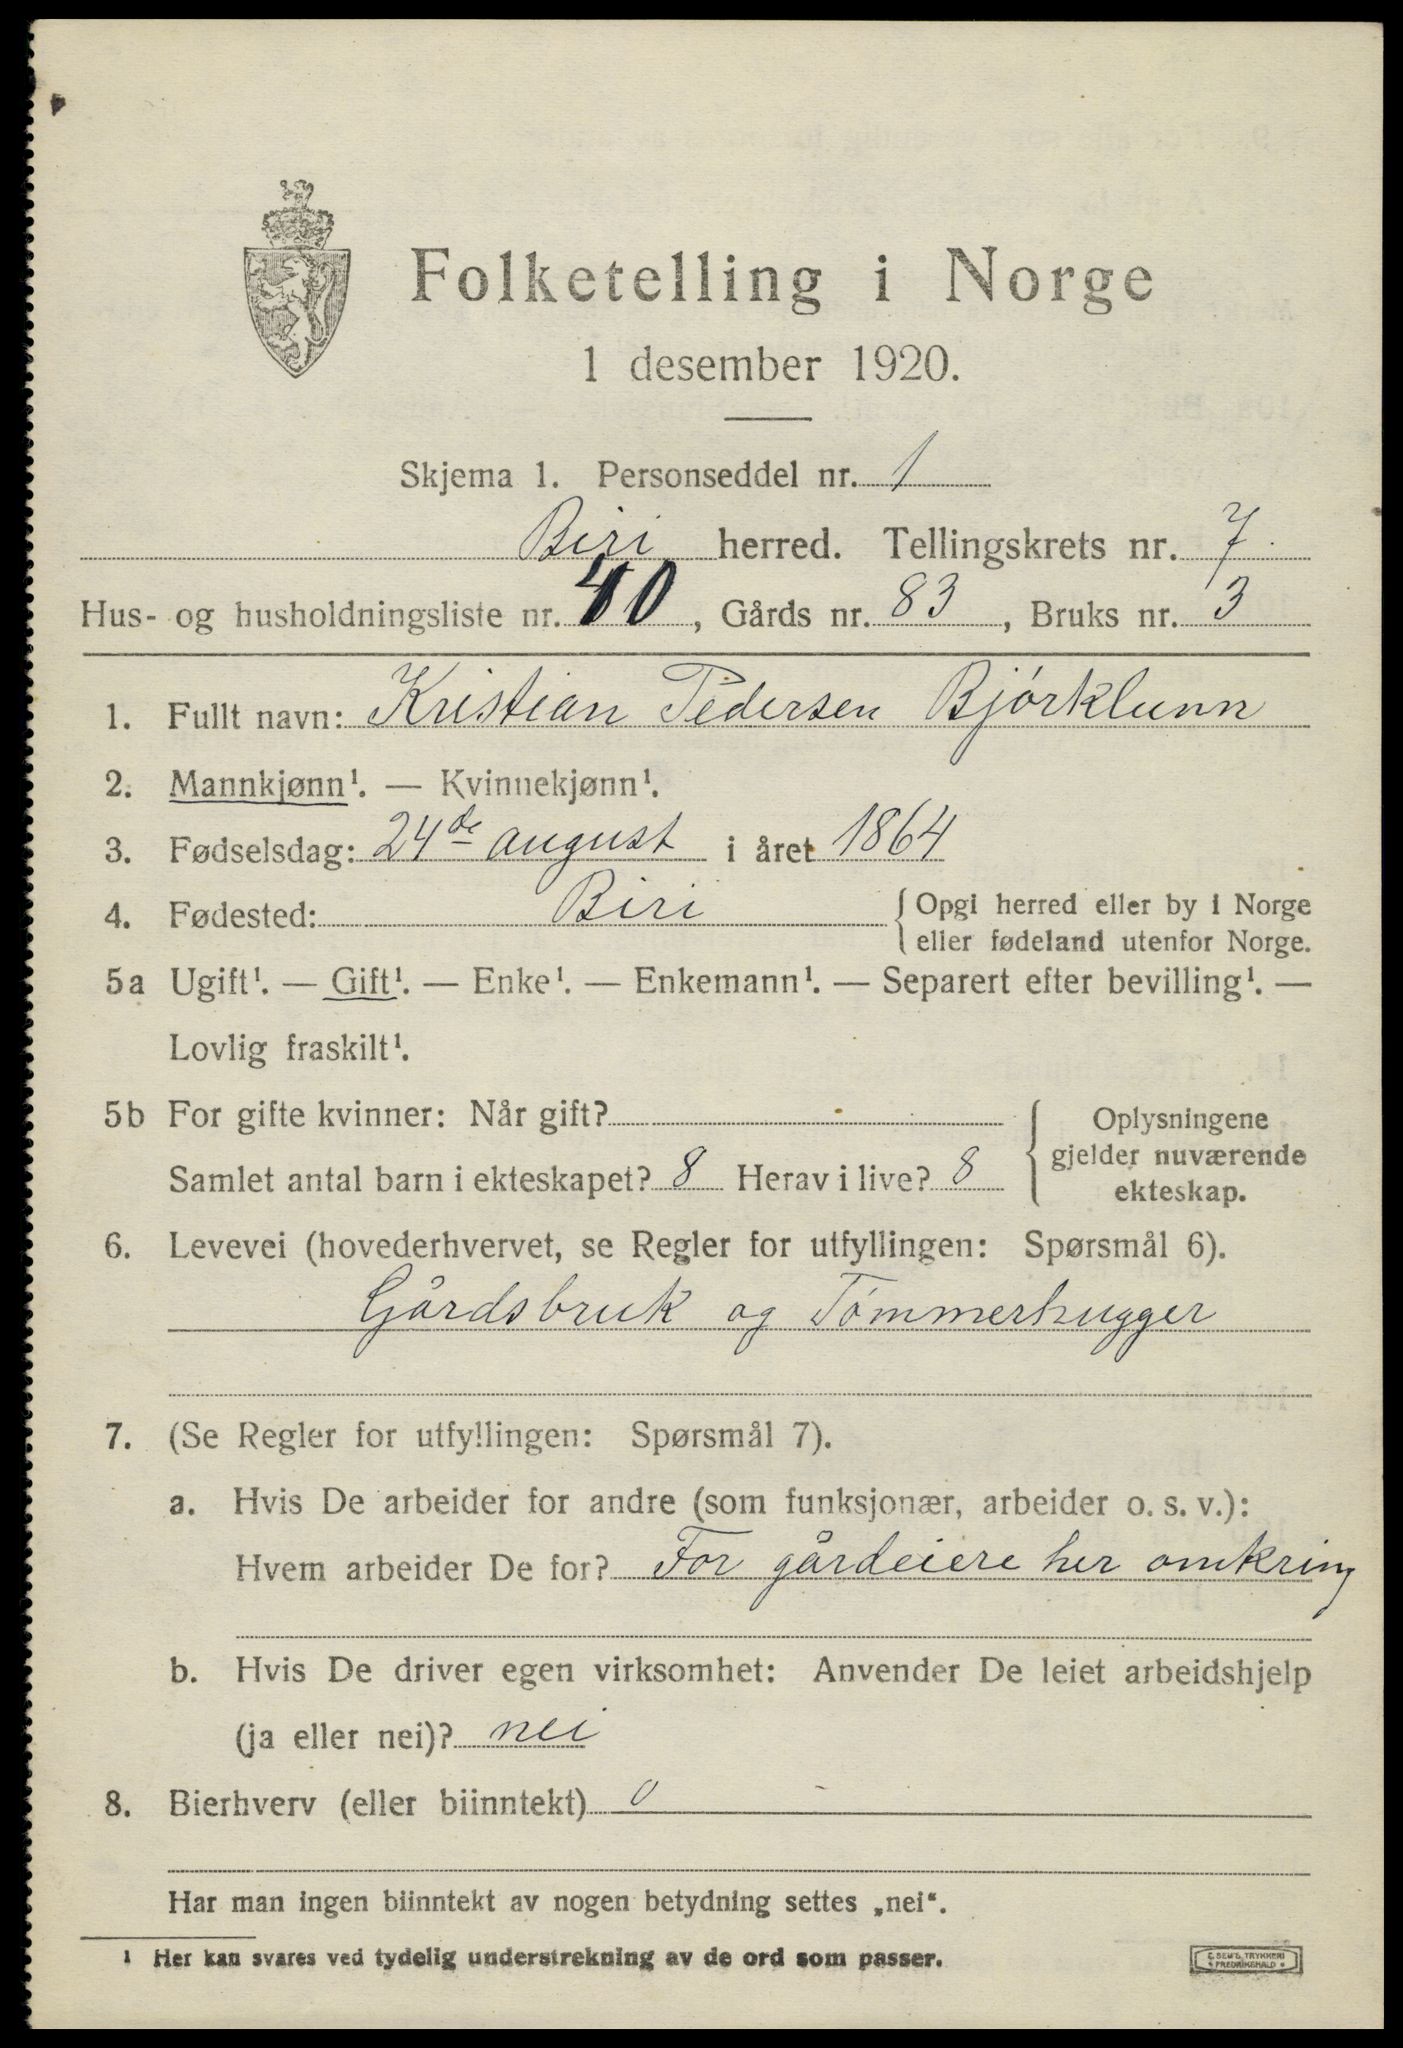 Folketelling i Norge
1 desember 1920.
Skjema 1. Personseddel nr. 1
Biri herred. Tellingskrets nr. 7.
Hus- og husholdningsliste nr. 40, Gårds nr. 83, Bruks nr. 3
1. Fullt navn: Kristian Pedersen Bjórklunn
2. Mannkjønn¹. — Kvinnekjønn¹.
3. Fødselsdag: 24de august i året 1864
4. Fødested: Biri { Opgi herred eller by i Norge
eller fødeland utenfor Norge.
5a Ugift¹. — Gift¹. — Enke¹. — Enkemann¹. — Separert efter bevilling¹. —
Lovlig fraskilt¹.
5b For gifte kvinner: Når gift?
Samlet antal barn i ekteskapet? 8 Herav i live? 8
{ Oplysningene
gjelder nuværende
ekteskap.
6. Levevei (hovederhvervet, se Regler for utfyllingen: Spørsmål 6).
Gårdsbruk og Tómmerhugger
7. (Se Regler for utfyllingen: Spørsmål 7).
a. Hvis De arbeider for andre (som funksjonær, arbeider o. s. v.):
Hvem arbeider De for? For gårdeiere her omkring
b. Hvis De driver egen virksomhet: Anvender De leiet arbeidshjelp
(ja eller nei)? nei
8. Bierhverv (eller biinntekt) 0
Har man ingen biinntekt av nogen betydning settes „nei“.
¹ Her kan svares ved tydelig understrekning av de ord som passer.
E. SEM'S TRYKKERI
FREDRIKSHALD